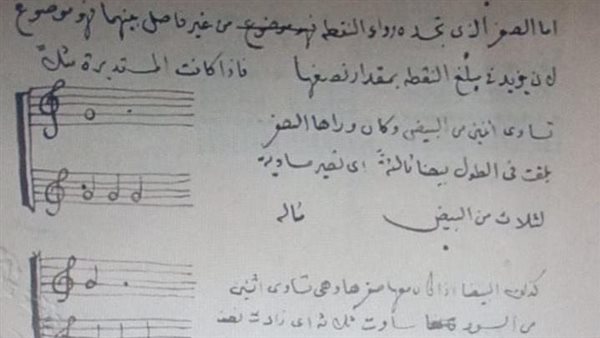 اما الصفر الذي تجده وراء النقطه فهو موضوع من غير فاصل بينهما فهو موضوع
لان يزيد في بلغ النقطه بمقدار نصفها فاذا كانت المستديرة مثلاً
تساوى اثنين من البيض وكان وراها الصفر
بلغت في الطول بيضا ثالثة اى تصير مساوية
لثلاث من البيض مثاله
كذلك البيضا اذا كان معها صفرها وهى تساوى اثنين
من السود ساوت ثلاثه اى زادت نصف